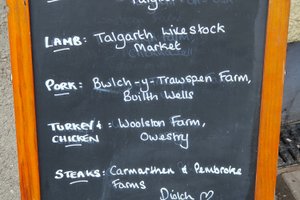 LAMB: Talgarth Livestock
Market
PORK: Bwlch-y-Trawspen Farm,
Builth Wells
TURKEY &
CHICKEN: Woolston Farm,
Owestry
STEAKS: Carmarthen & Pembroke
Farms
Diolch ♡